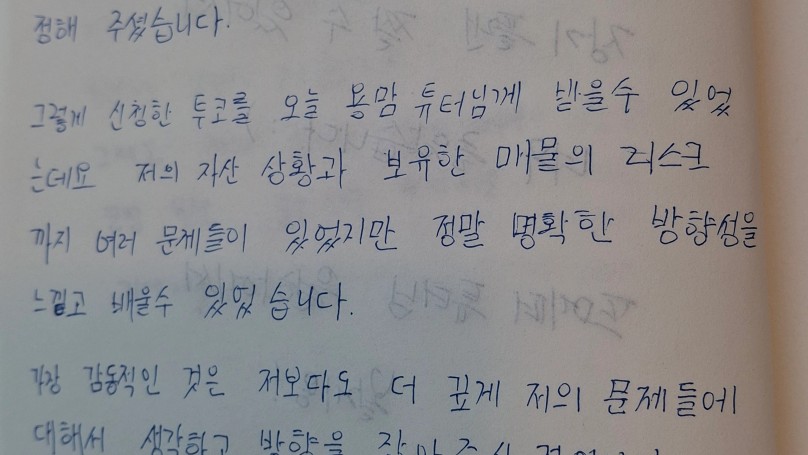 정해 주셨습니다.
그렇게 신청한 투코를 오늘 용맘 튜터님께 받을수 있었
는데요 저의 자산 상황과 보유한 매물의 리스크
까지 여러 문제들이 있었지만 정말 명확한 방향성을
느끼고 배울수 있었습니다.
가장 감동적인 것은 저보다도 더 깊게 저의 문제들에
대해서 생각하고 방향을